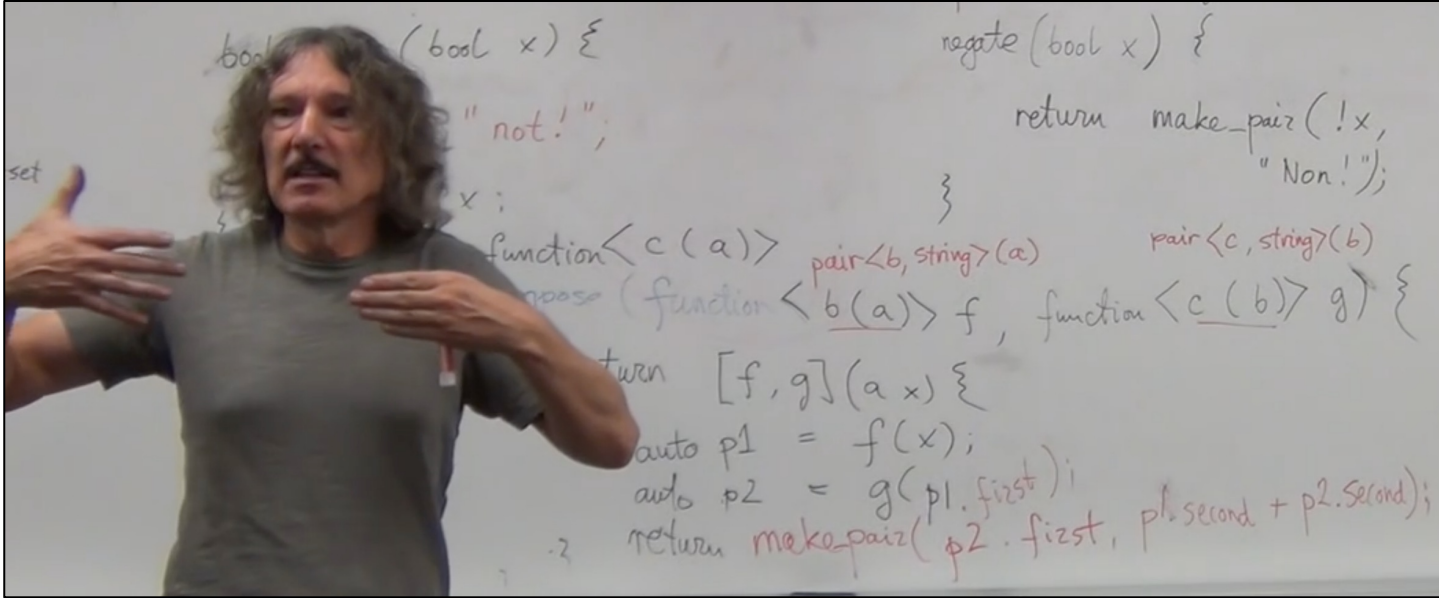 (bool x) {
negate (bool x) {
"not!";
return make_pair ( !x,
"Non!");
set
x :
}
}
function<c (a)>
pair<b, string>(a)
pair<c, string>(b)
(function <b(a)> f, function <c (b)> g) {
[f, g] (a x) {
auto p1 = f(x);
auto p2 = g(p1.first);
return make_pair( p2.first, p1.second + p2.second);